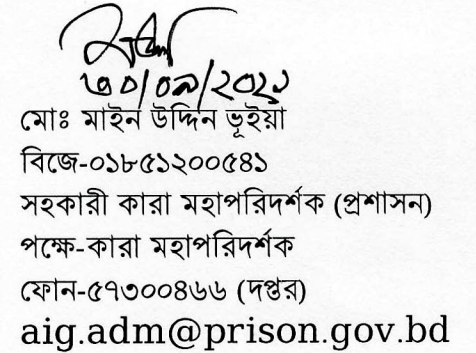 ৩০/০৯/২০২১
মোঃ মাইন উদ্দিন ভূইয়া
বিজে-০১৮৫১২০০৫৪১
সহকারী কারা মহাপরিদর্শক (প্রশাসন)
পক্ষে-কারা মহাপরিদর্শক
ফোন-৫৭৩০০৪৬৬ (দপ্তর)
aig.adm@prison.gov.bd